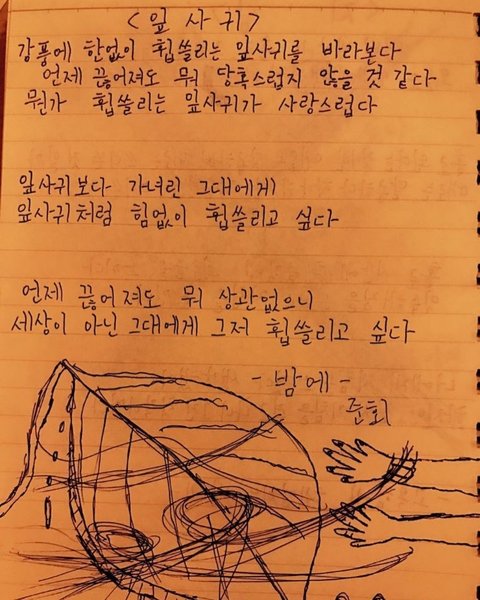 <잎사귀>
강풍에 한없이 휩쓸리는 잎사귀를 바라본다
언제 끊어져도 뭐 당혹스럽지 않을 것 같다
뭔가 휩쓸리는 잎사귀가 사랑스럽다
잎사귀보다 가녀린 그대에게
잎사귀처럼 힘없이 휩쓸리고 싶다
언제 끊어져도 뭐 상관없으니
세상이 아닌 그대에게 그저 휩쓸리고 싶다
- 밤에 -
준회